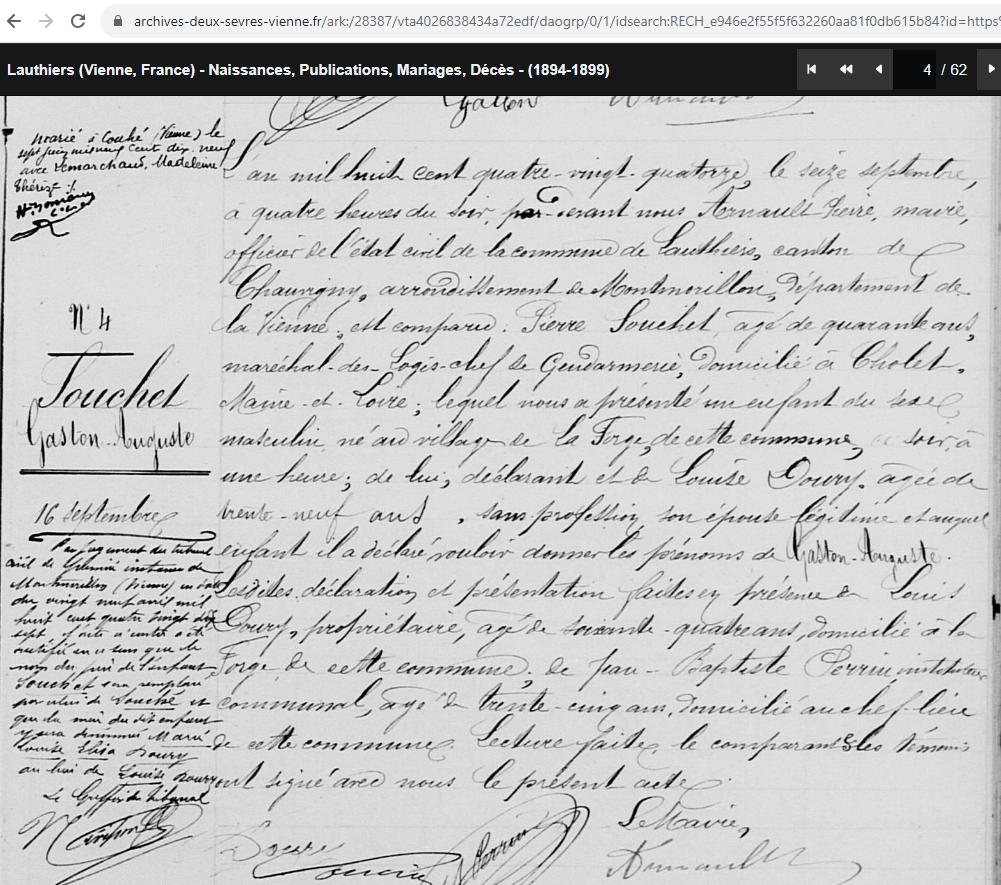 archives-deux-sevres-vienne.fr/ark:/28387/vta4026838434a72edf/daogrp/0/1/idsearch:RECH_e946e2f55f5f632260aa81f0db615b84?id=https
Lauthiers (Vienne, France) - Naissances, Publications, Mariages, Décès - (1894-1899)
4 / 62
Gaston Arnault
marié à Couhé (Vienne) le
sept juin mil neuf cent dix neuf
avec Lemarchand, Madeleine
Thérèse ./.
N° 4
Souchet
Gaston-Auguste
16 septembre
Par jugement du tribunal
civil de première instance de
Montmorillon (Vienne) en date
du vingt neuf avril mil
huit cent quatre vingt dix
sept, l'acte ci-contre a été
rectifié en ce sens que le
nom du père de l'enfant
Souchet sera remplacé
par celui de Souché et
que la mère du dit enfant
y sera dénommée Marie
Louise Elisa Doury
au lieu de Louise Doury
Le Greffier du tribunal
L'an mil huit cent quatre-vingt-quatorze, le seize septembre,
à quatre heures du soir, par-devant nous Arnault Pierre, maire,
officier de l'état civil de la commune de Lauthiers, canton de
Chauvigny, arrondissement de Montmorillon, Département de
la Vienne, est comparu : Pierre Souchet, âgé de quarante ans,
maréchal-des-Logis-chef de Gendarmerie, domicilié à Cholet,
Maine-et-Loire ; lequel nous a présenté un enfant du sexe
masculin, né au village de la Forge, de cette commune, ce soir, à
une heure ; de lui, déclarant et de Louise Doury, âgée de
trente-neuf ans, sans profession, son épouse légitime et auquel
enfant il a déclaré vouloir donner les prénoms de Gaston-Auguste.
Lesdites déclaration et présentation faites en présence de Louis
Doury, propriétaire, âgé de soixante-quatre ans, domicilié à la
Forge, de cette commune, de Jean-Baptiste Perrin instituteur
communal, âgé de trente-cinq ans, domicilié au chef-lieu
de cette commune. Lecture faite, le comparant & les témoins
ont signé avec nous le présent acte.
Le Maire,
Doury Perrin Arnault